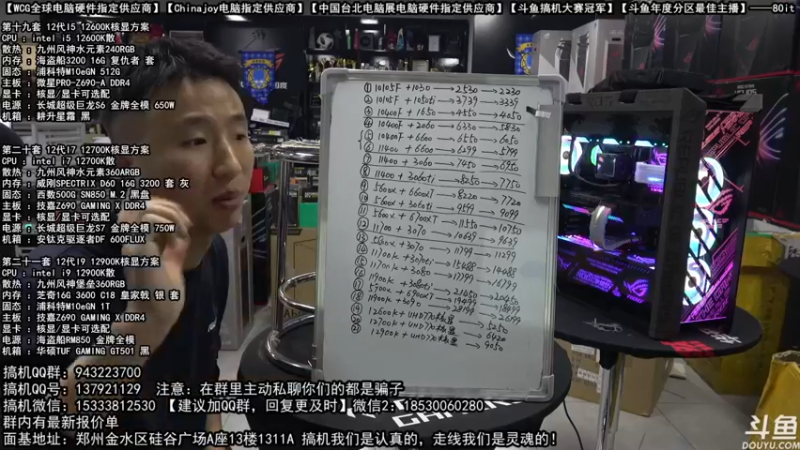 【WCG全球电脑硬件指定供应商】【Chinajoy电脑指定供应商】【中国台北电脑展电脑硬件指定供应商】【斗鱼搞机大赛冠军】【斗鱼年度分区最佳主播】——80it
第十九套 12代I5 12600K核显方案
CPU : intel i5 12600K散
散热 : 九州风神水元素240RGB
内存 : 海盗船3200 16G 复仇者 套
固态 : 浦科特M10eGN 512G
主板 : 微星PRO-Z690-A DDR4
显卡 : 核显/显卡可选配
电源 : 长城超级巨龙S6 金牌全模 650W
机箱 : 耕升星霜 黑
第二十套 12代I7 12700K核显方案
CPU : intel i7 12700K散
散热 : 九州风神水元素360ARGB
内存 : 威刚SPECTRIX D60 16G 3200 套 灰
固态 : 西数500G SN850 M.2 黑盘
主板 : 技嘉Z690 GAMING X DDR4
显卡 : 核显/显卡可选配
电源 : 长城超级巨龙S7 金牌全模 750W
机箱 : 安钛克驱逐者DF 600FLUX
第二十一套 12代I9 12900K核显方案
CPU : intel i9 12900K散
散热 : 九州风神堡垒360RGB
内存 : 芝奇16G 3600 C18 皇家戟 银 套
固态 : 浦科特M10eGN 1T
主板 : 技嘉Z690 GAMING X DDR4
显卡 : 核显/显卡可选配
电源 : 海盗船RM850 金牌全模
机箱 : 华硕TUF GAMING GT501 黑
① 10105F + 1030 → 2530 → 2230
② 10105F + 1050ti → 3739 → 3339
③ 10400F + 1650 → 4550 → 4050
④ 10400F + 2060 → 6330 → 5830
⑤ 10400F + 6600 → 6550 → 6050
⑥ 11400 + 6600 → 6299 → 5799
⑦ 11400 + 3060 → 7450 → 6950
⑧ 11400 + 3060ti → 8250 → 7750
⑨ 5600X + 6600XT → 8220 → 7720
⑩ 5600X + 3060ti → 9599 → 9099
⑪ 5600X + 6700XT → 11550 → 10750
⑫ 11700 + 3070 → 10639 → 9639
⑬ 5600X + 3070 → 11799 → 11299
⑭ 11700K + 3070ti → 15488 → 14488
⑮ 11700K + 3080 → 17799 → 16799
搞机QQ群: 943223700
搞机QQ号: 137921129 注意: 在群里主动私聊你们的都是骗子
搞机微信: 15333812530 【建议加QQ群, 回复更及时】微信2: 18530060280
群内有最新报价单
面基地址: 郑州金水区硅谷广场A座13楼1311A 搞机我们是认真的, 走线我们是灵魂的!
斗鱼
DOUYU.COM